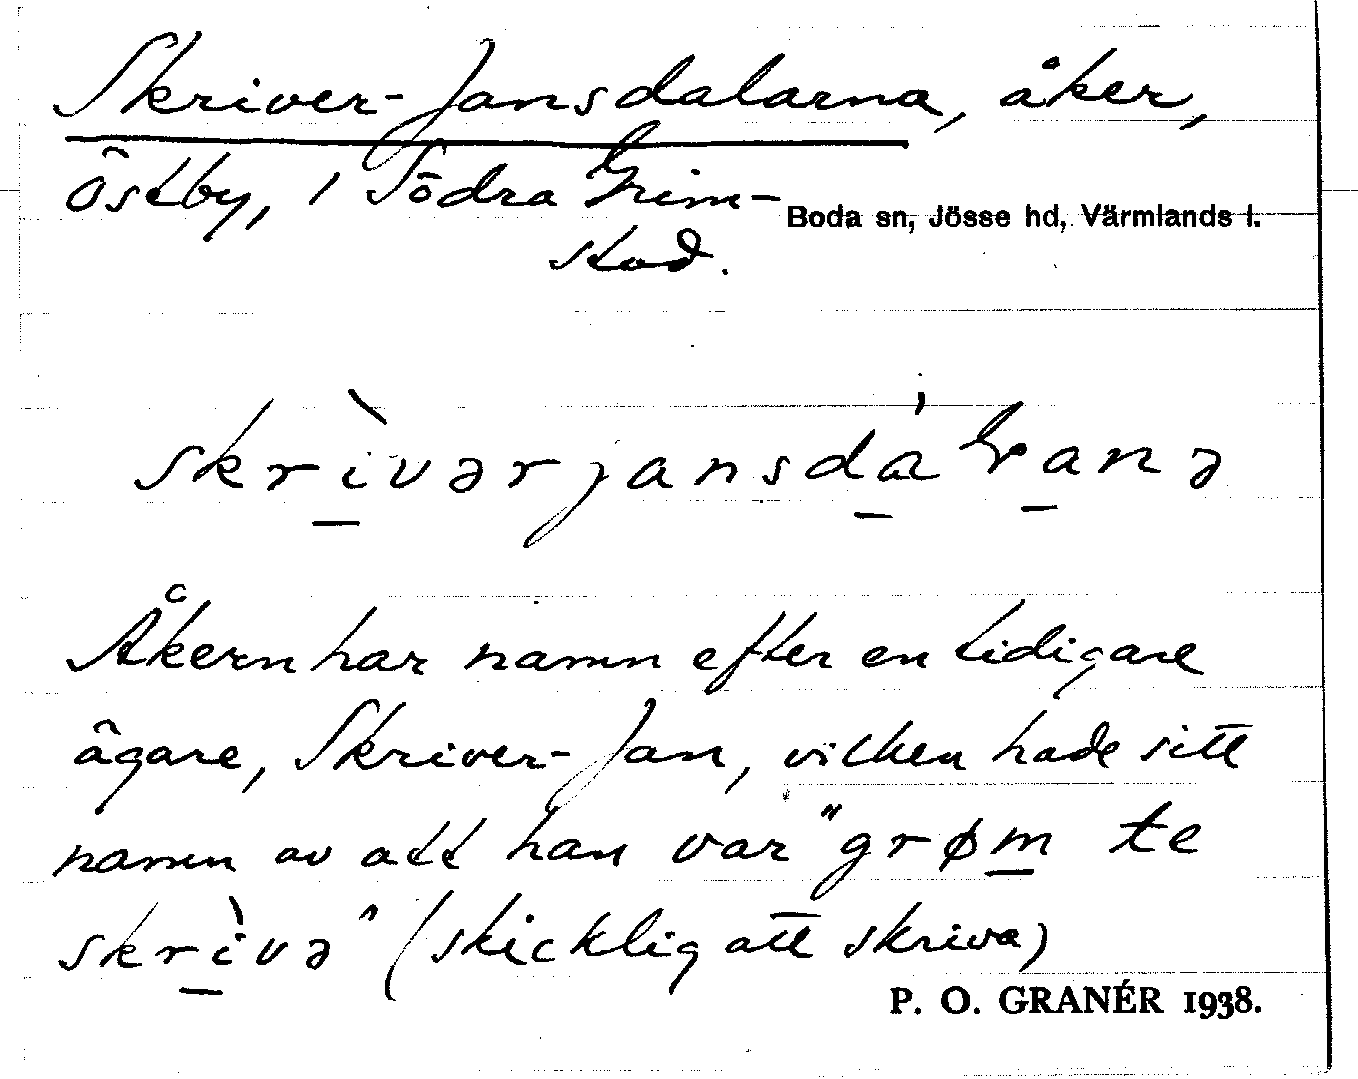 Skriver-Jansdalarna, åker,
Östby, i Södra Grim-
stad.
Boda sn, Jösse hd, Värmlands l.
skrìvərjansdáɽanə
Åkern har namn efter en tidigare
ägare, Skriver-Jan, vilken hade sitt
namn av att han var "grøm te
skrìvə" (skicklig att skriva)
P. O. GRANÉR 1938.